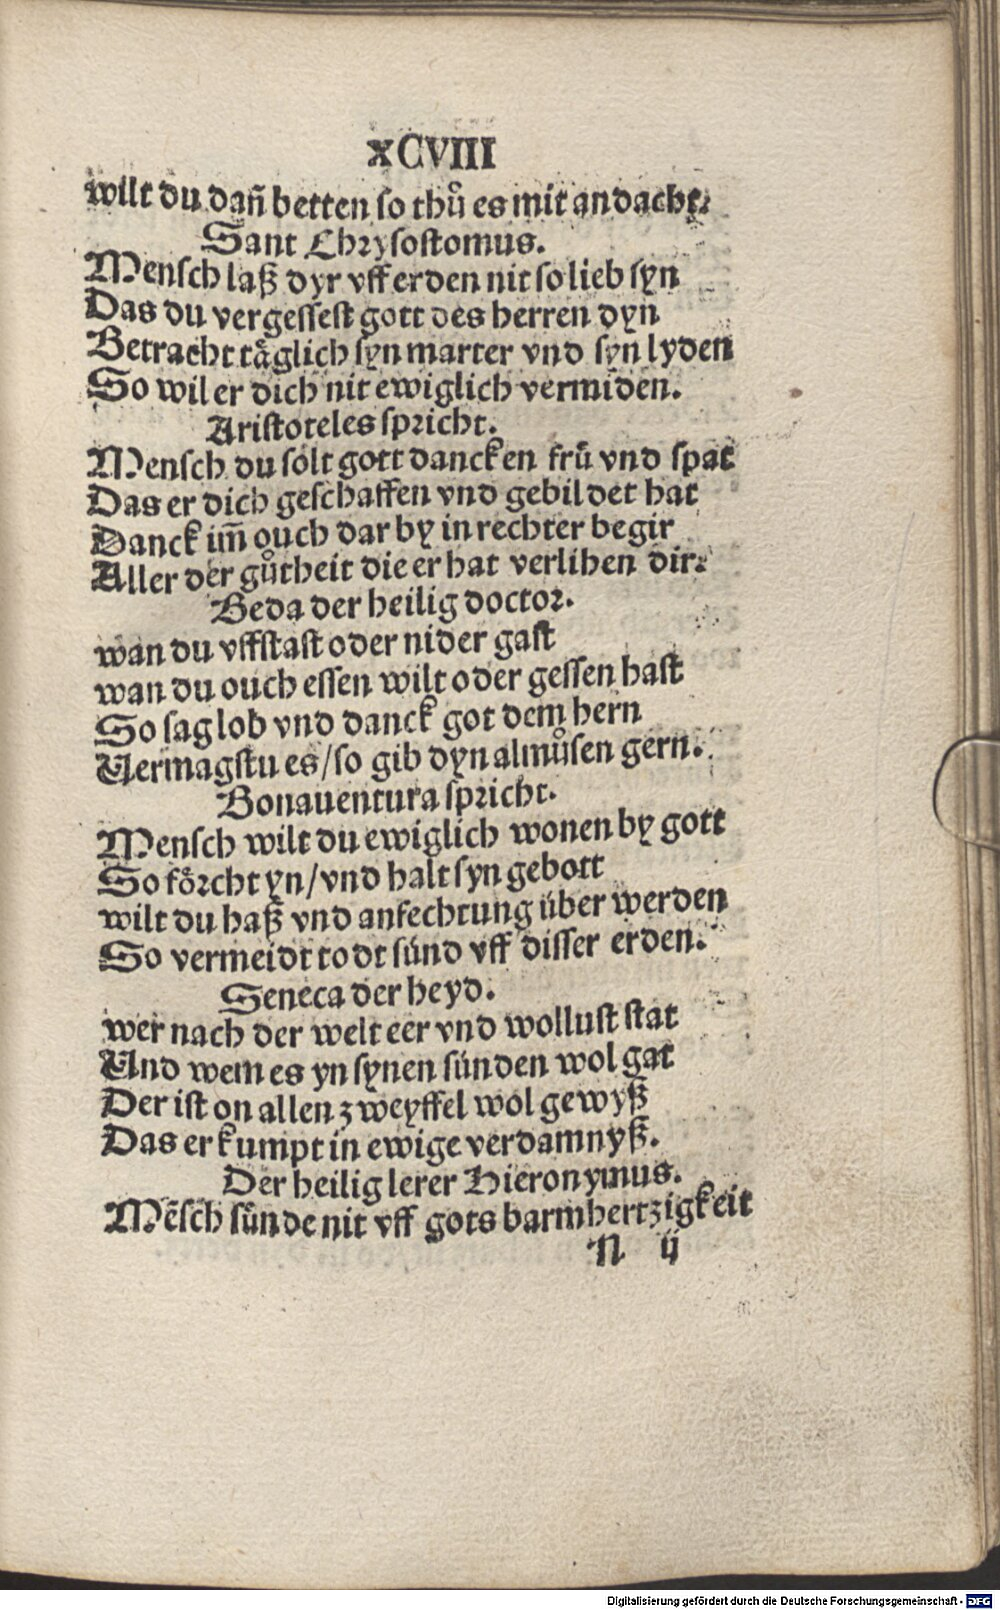 xCVIII
wilt du dañ betten so thuͦ es mit andacht.
Sant Chrysostomus.
Mensch laß dyr vff erden nit so lieb syn
Das du vergessest gott des herren dyn
Betracht taͤglich syn marter vnd syn lyden
So wil er dich nit ewiglich vermiden.
Aristoteles spricht.
Mensch du solt gott dancken fruͤ vnd spat
Das er dich geschaffen vnd gebildet hat
Danck im̄ ouch dar by in rechter begir
Aller der guͦtheit die er hat verlihen dir.
Beda der heilig doctor.
wan du vffstast oder nider gast
wan du ouch essen wilt oder gessen hast
So sag lob vnd danck got dem hern
Vermagstu es/so gib dyn almuͦsen gern.
Bonauentura spricht.
Mensch wilt du ewiglich wonen by gott
So foͤrcht yn/vnd halt syn gebott
wilt du haß vnd anfechtung über werden
So vermeidt todt sünd vff disser erden.
Seneca der heyd.
wer nach der welt eer vnd wollust stat
Und wem es yn synen sünden wol gat
Der ist on allen zweyffel wol gewyß
Das er kumpt in ewige verdamnyß.
Der heilig lerer Hieronymus.
Mẽsch sünde nit vff gots barmhertzigkeit
N ij
Digitalisierung gefördert durch die Deutsche Forschungsgemeinschaft - DFG